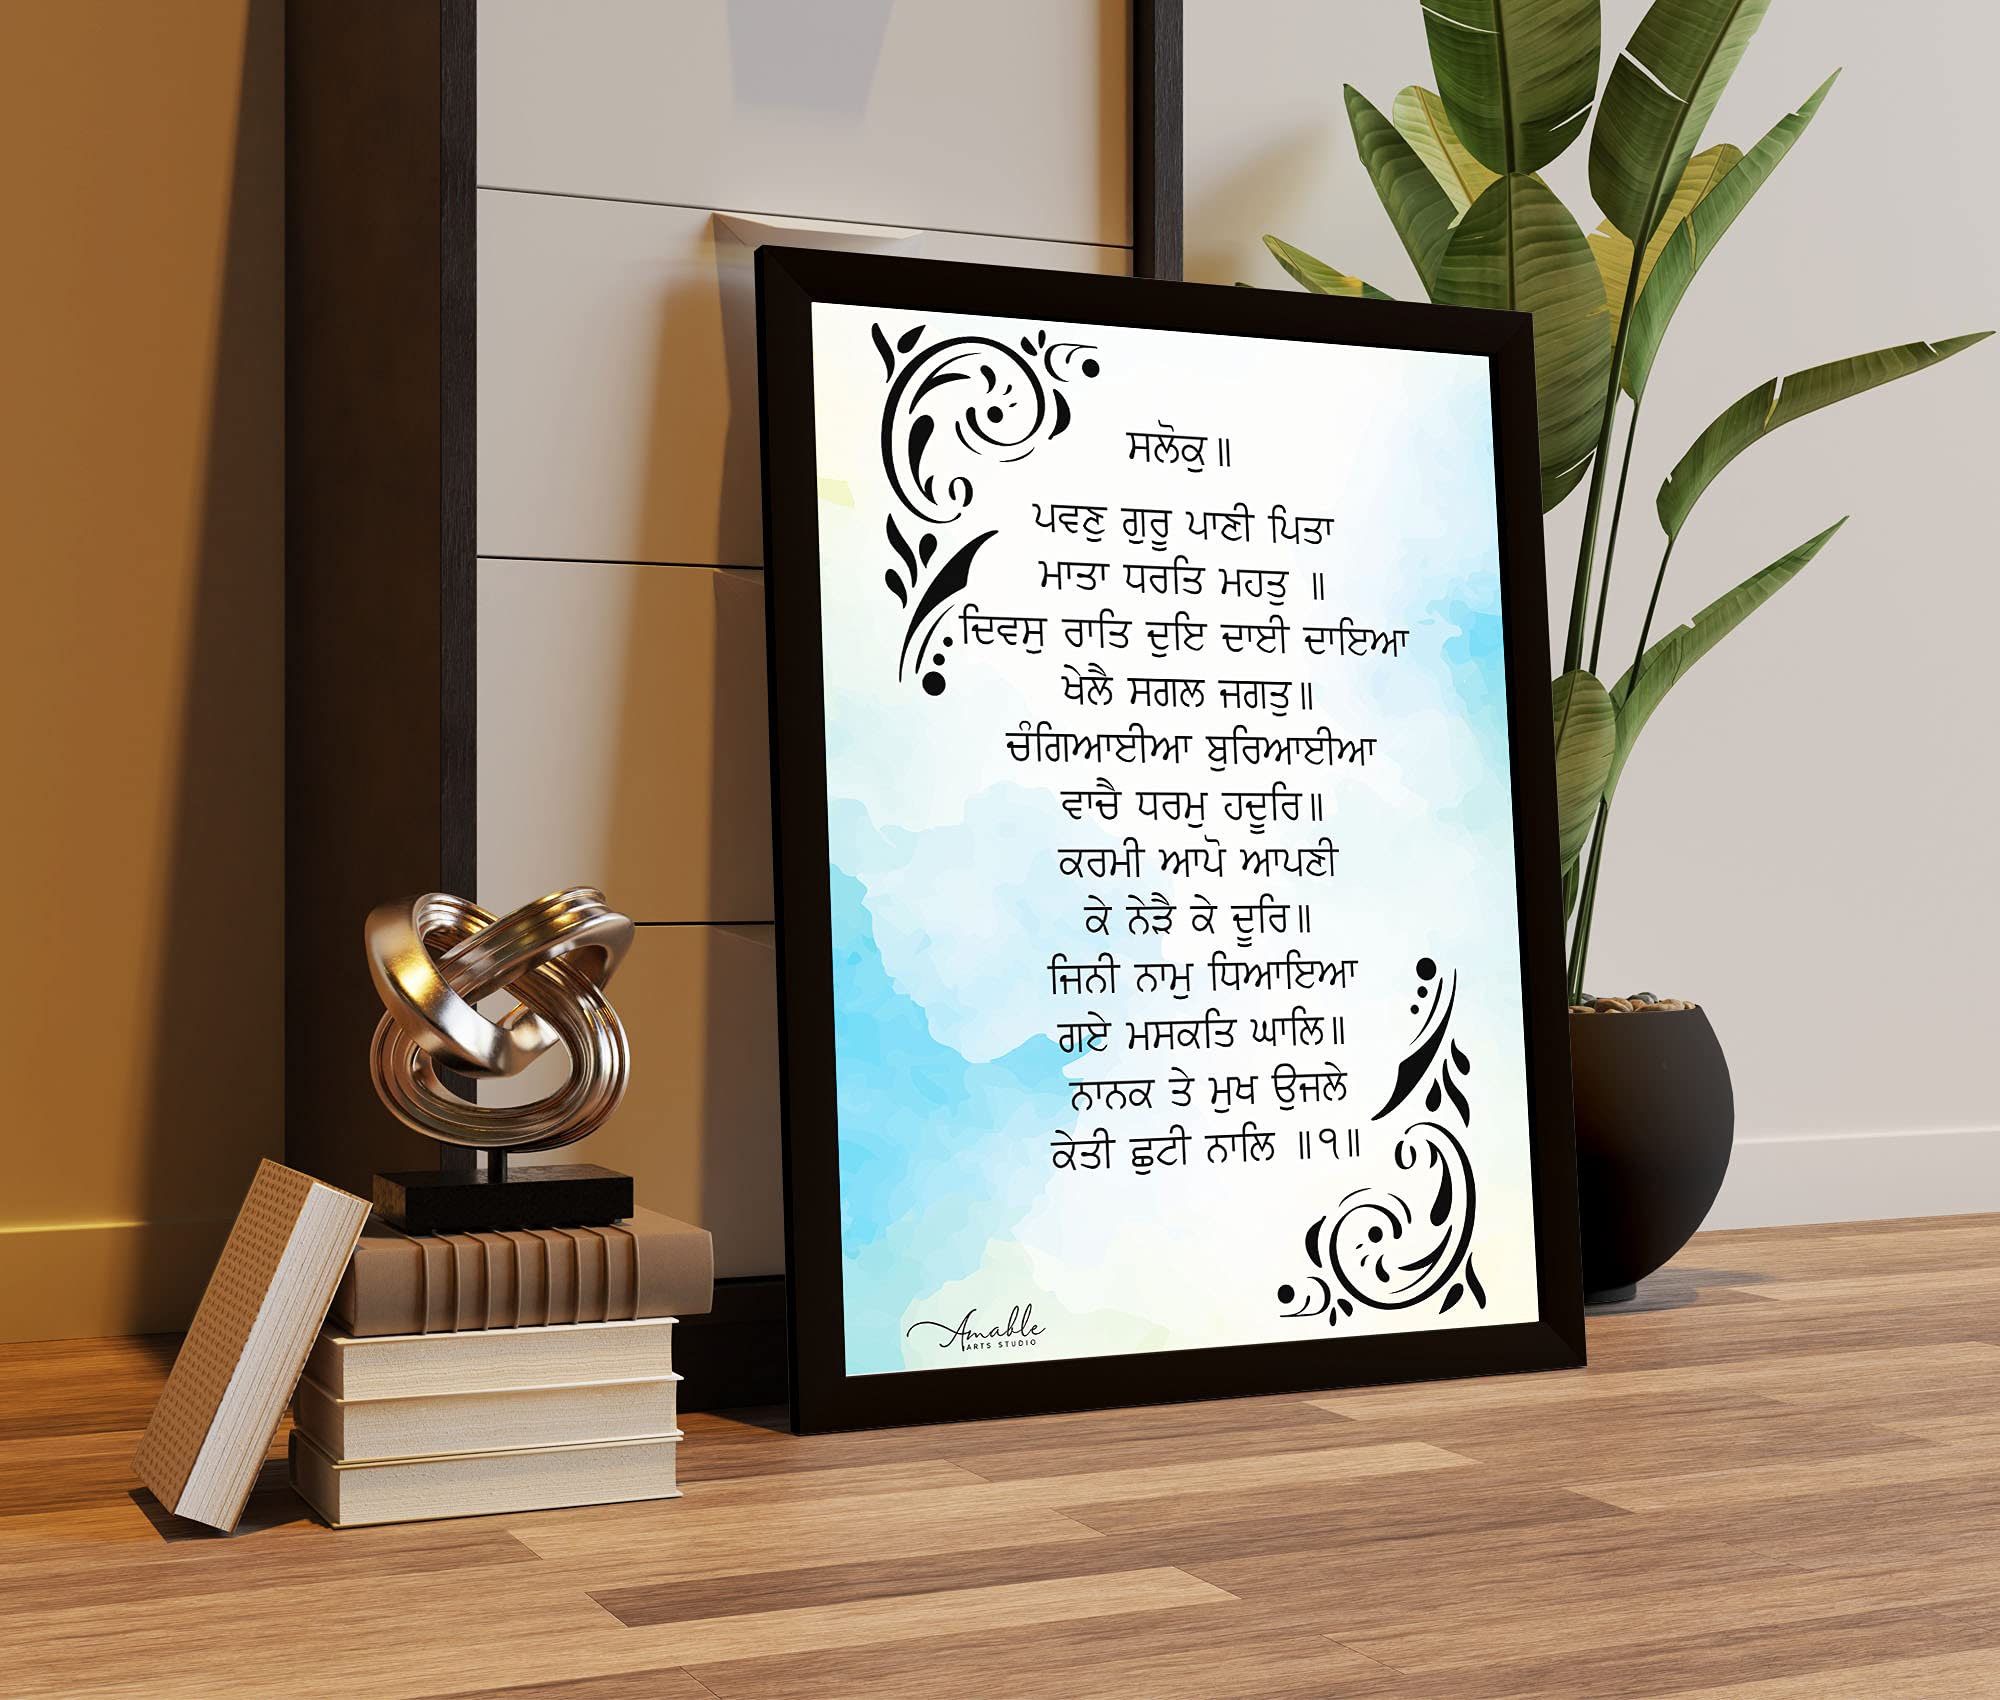 ਸਲੋਕੁ॥
ਪਵਣੁ ਗੁਰੂ ਪਾਣੀ ਪਿਤਾ
ਮਾਤਾ ਧਰਤਿ ਮਹਤੁ ॥
ਦਿਵਸੁ ਰਾਤਿ ਦੁਇ ਦਾਈ ਦਾਇਆ
ਖੇਲੈ ਸਗਲ ਜਗਤੁ॥
ਚੰਗਿਆਈਆ ਬੁਰਿਆਈਆ
ਵਾਚੈ ਧਰਮੁ ਹਦੂਰਿ॥
ਕਰਮੀ ਆਪੋ ਆਪਣੀ
ਕੇ ਨੇੜੈ ਕੇ ਦੂਰਿ॥
ਜਿਨੀ ਨਾਮੁ ਧਿਆਇਆ
ਗਏ ਮਸਕਤਿ ਘਾਲਿ॥
ਨਾਨਕ ਤੇ ਮੁਖ ਉਜਲੇ
ਕੇਤੀ ਛੁਟੀ ਨਾਲਿ ॥੧॥
Amable
ARTS STUDIO